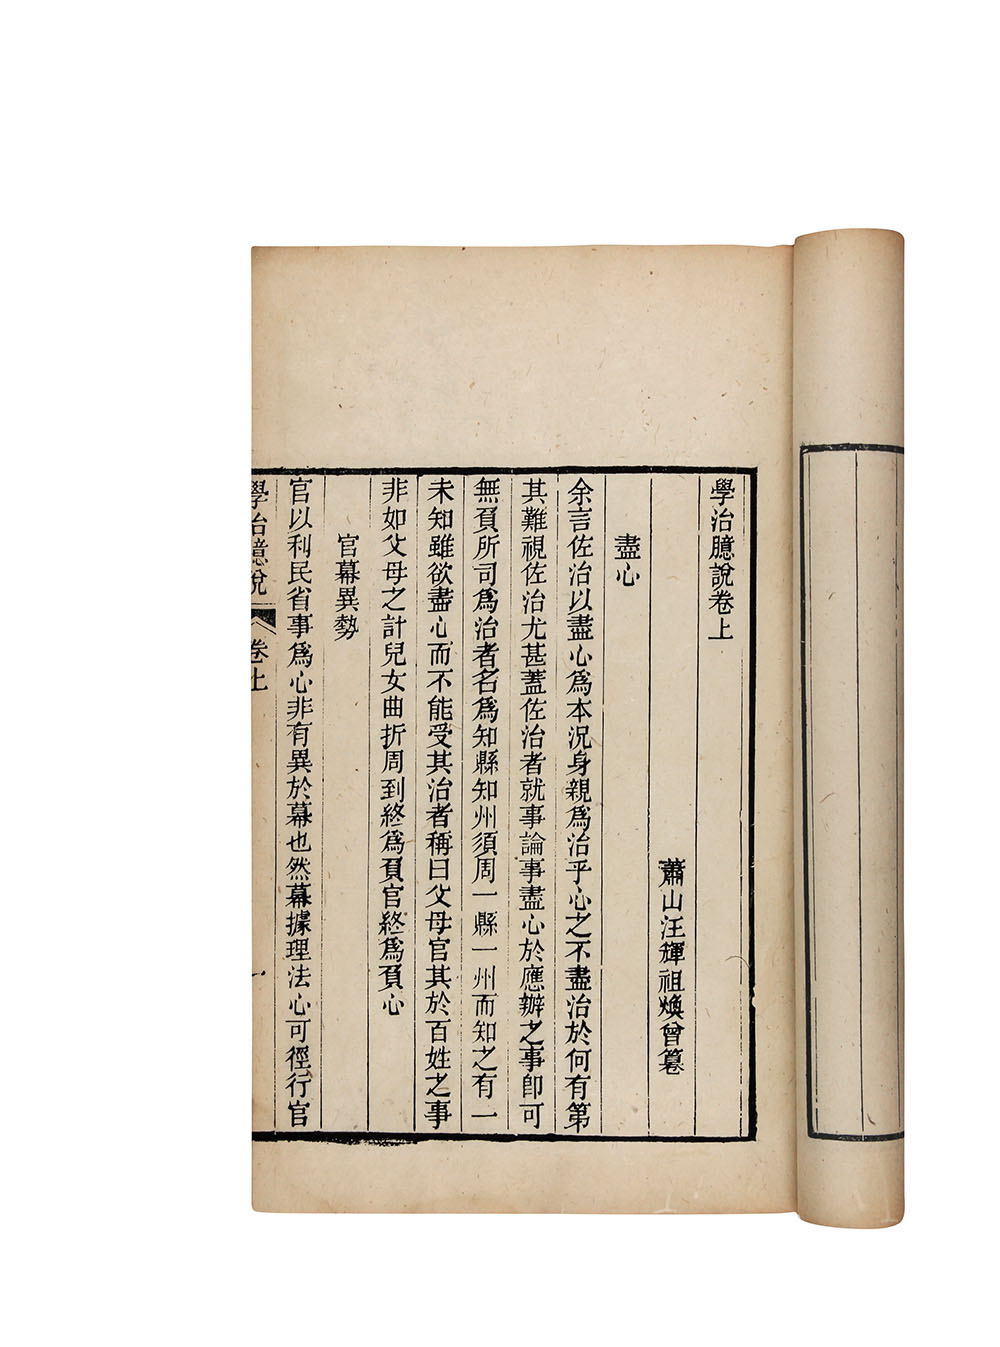 學治臆說卷上
蕭山汪輝祖煥曾纂
盡心
余言佐治以盡心爲本況身親爲治乎心之不盡治於何有第
其難視佐治尤甚蓋佐治者就事論事盡心於應辦之事即可
無負所司爲治者名爲知縣知州須周一縣一州而知之有一
未知雖欲盡心而不能受其治者稱曰父母官其於百姓之事
非如父母之計兒女曲折周到終爲負官終爲負心
官幕異勢
官以利民省事爲心非有異於幕也然幕據理法心可徑行官
學治臆說 卷上 一